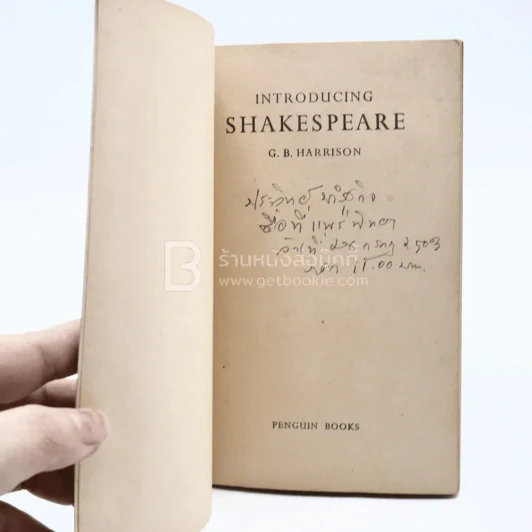 INTRODUCING
SHAKESPEARE
G. B. HARRISON
ซื้อที่ แพร่พิทยา
วันที่ กรกฎ ๒๕๐๓
น.
B ร้านหนังสือบุ๊คกี้
www.getbookie.com
PENGUIN BOOKS